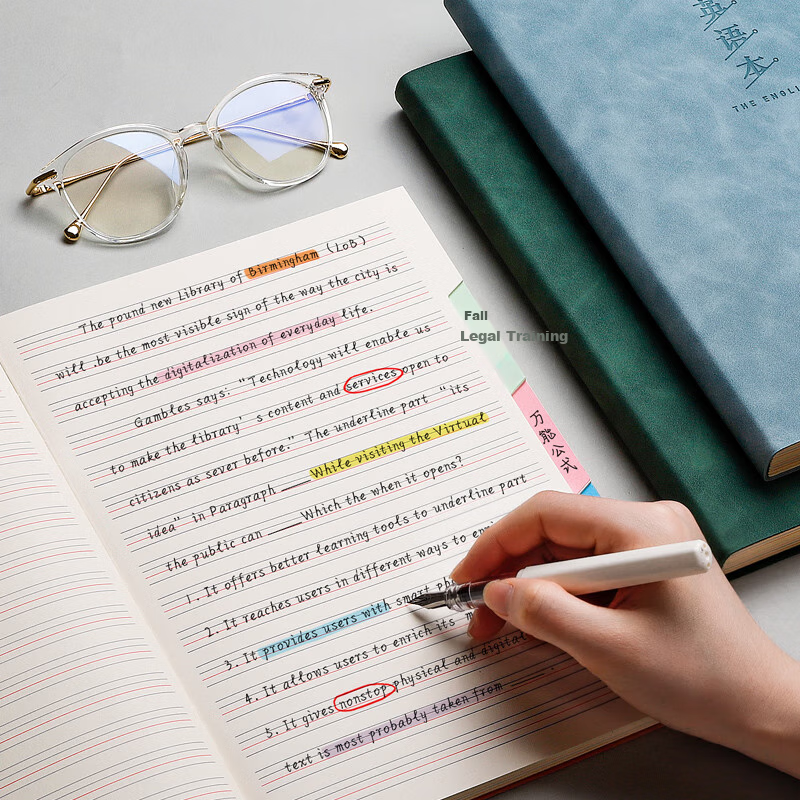 英语本
THE ENGLI
The pound new Library of Birmingham (LoB)
will .be the most visible sign of the way the city is
accepting the digitalization of everyday life.
Gambles says: "Technology will enable us
to make the library' s content and services open to
citizens as sever before." The underline part "its
idea" in Paragraph ____ While visiting the Virtual
the public can ____ Which the when it opens?
1. It offers better learning tools to underline part
2. It reaches users in different ways to
3. It provides users with smart
4. It allows users to enrich its
5. It gives nonstop physical and digital
text is most probably taken from ____ .
Fall
Legal Training
万能公式